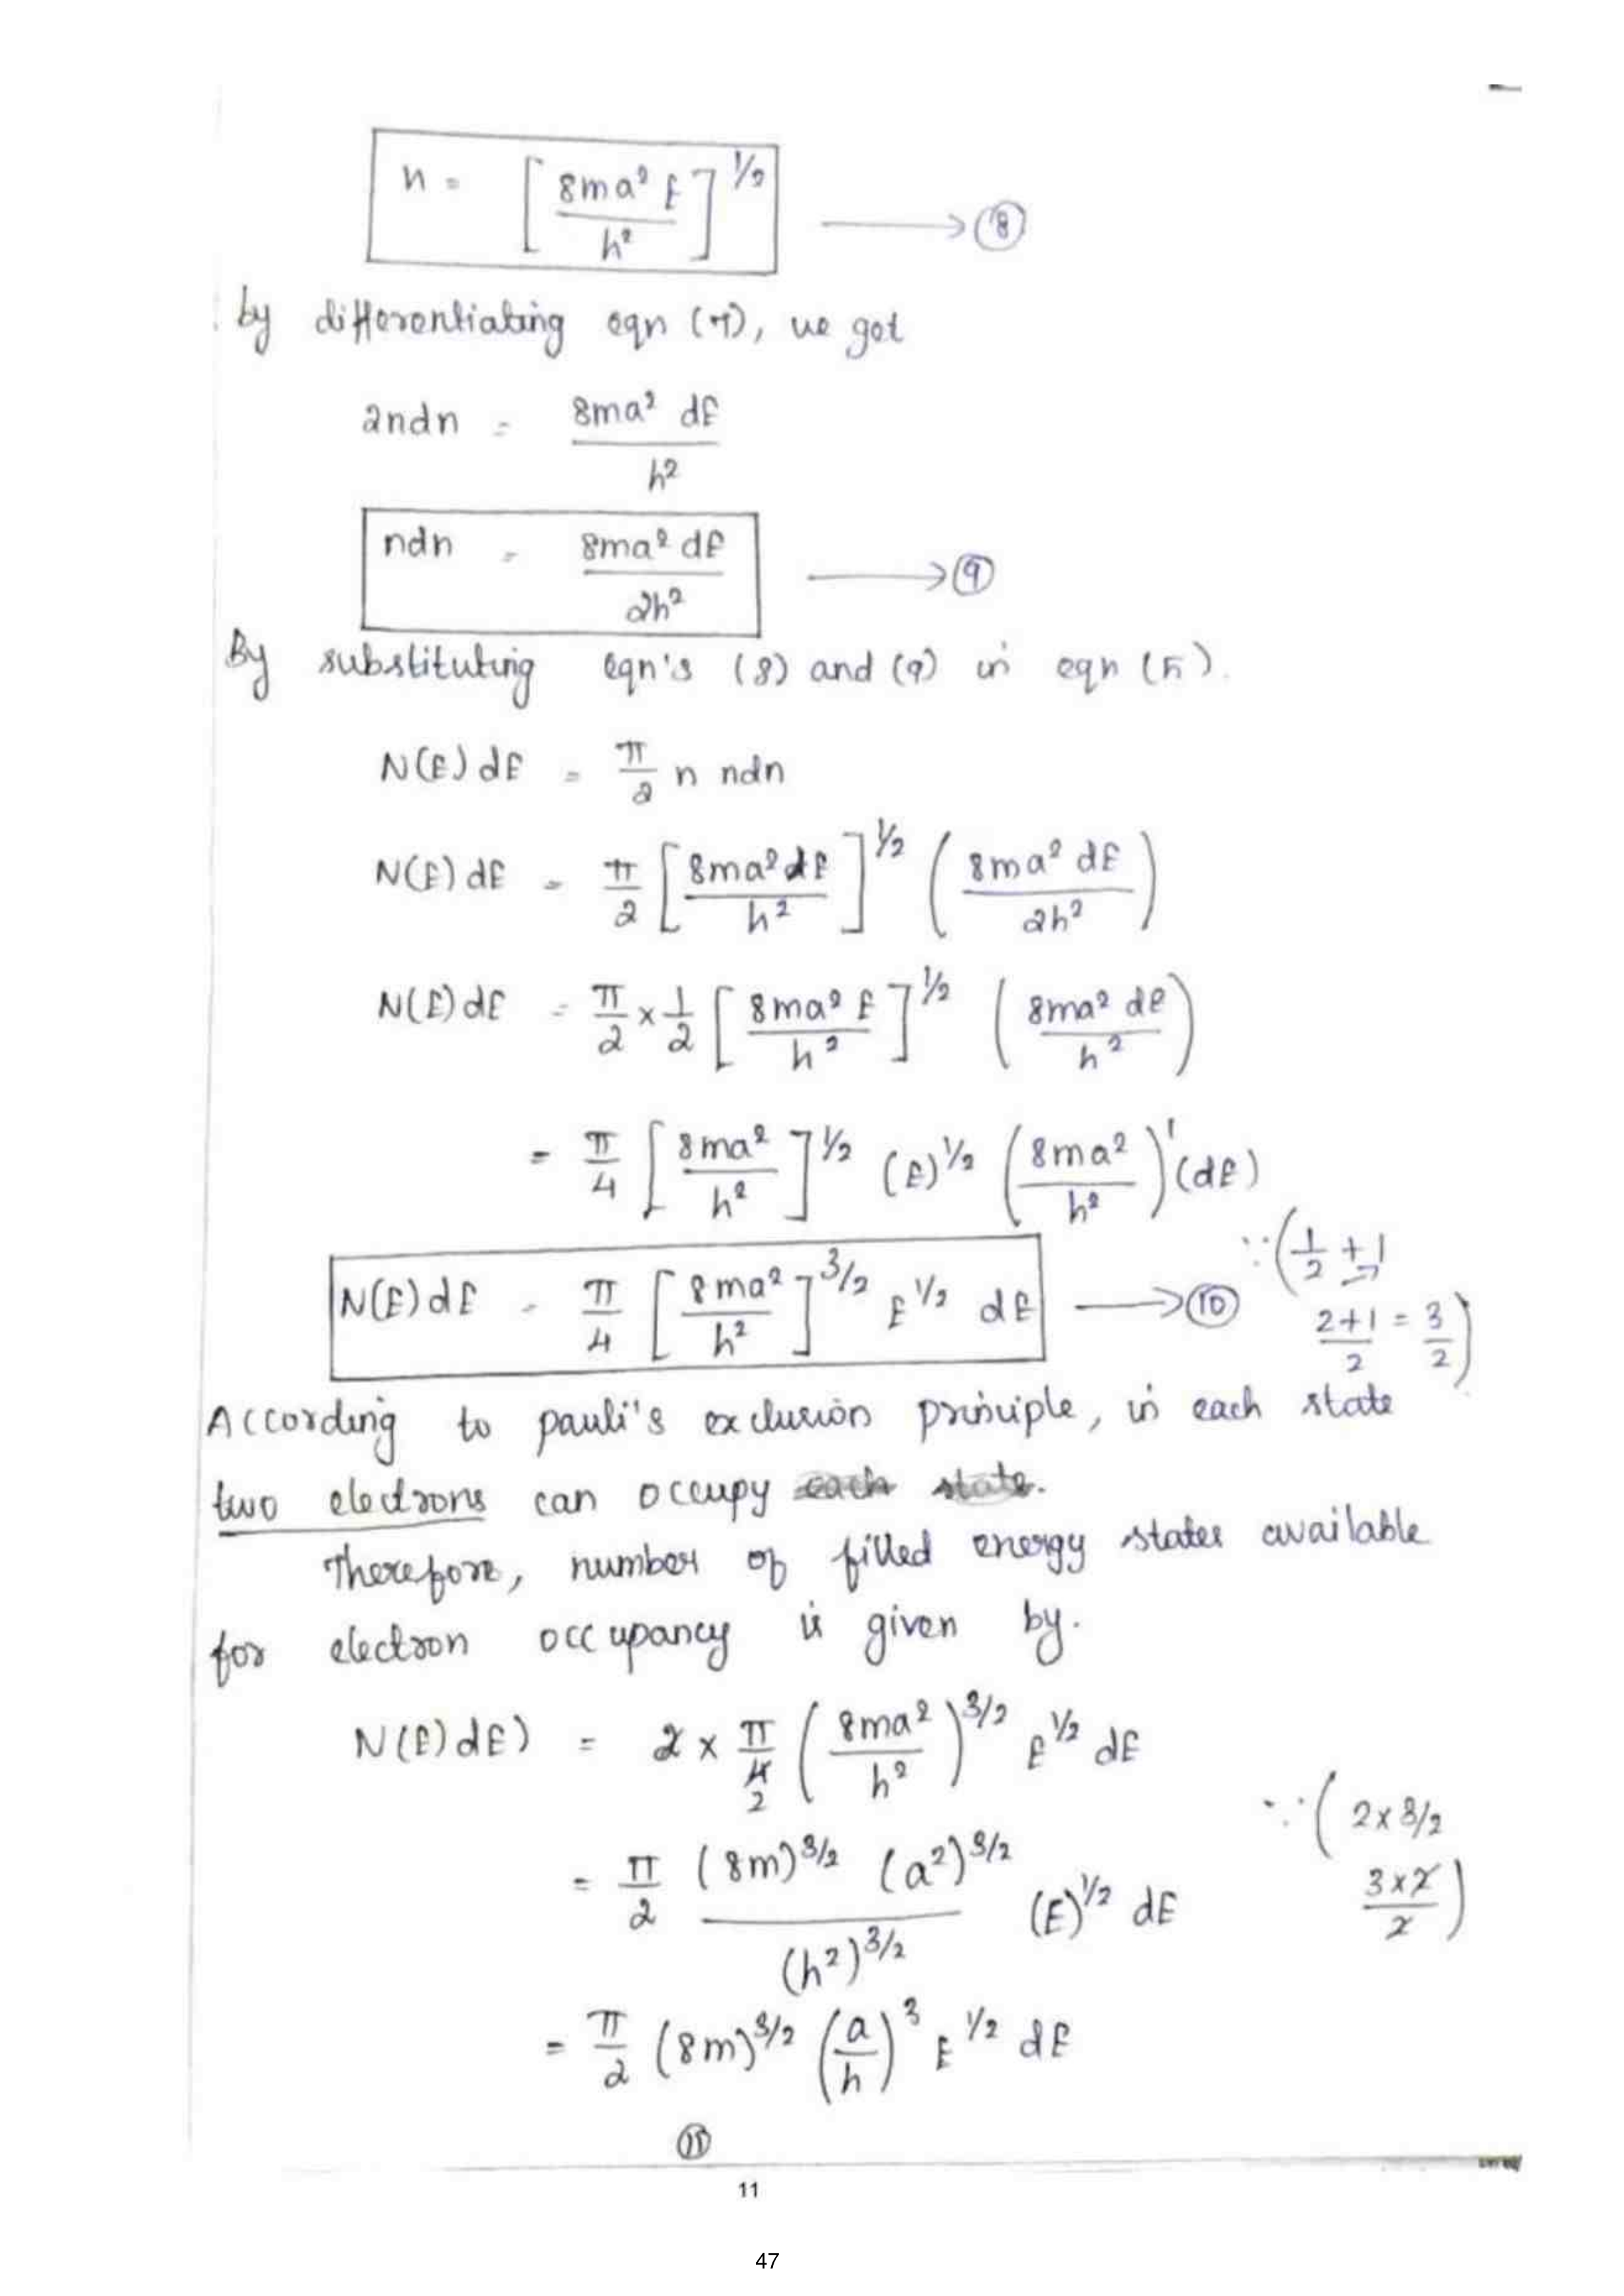 n = [8ma² E / h²]^1/2 ⟶ (8)
by differentiating eqn (7), we get
2ndn = 8ma² dE / h²
ndn = 8ma² dE / 2h² ⟶ (9)
By substituting eqn's (8) and (9) in eqn (5).
N(E) dE = π/2 n ndn
N(E) dE = π/2 [8ma² dE / h²]^1/2 (8ma² dE / 2h²)
N(E) dE = π/2 × 1/2 [8ma² E / h²]^1/2 (8ma² dE / h²)
= π/4 [8ma² / h²]^1/2 (E)^1/2 (8ma² / h²)^1 (dE)
N(E) dE = π/4 [8ma² / h²]^3/2 E^1/2 dE ⟶ (10) ∵ (1/2 + 1
2+1 / 2 = 3/2)
According to pauli's exclusion principle, in each state
two electrons can occupy each state.
Therefore, number of filled energy states available
for electron occupancy is given by.
N(E) dE) = 2 × π/4 2 (8ma² / h²)^3/2 E^1/2 dE
∵ (2 × 3/2
= π/2 (8m)^3/2 (a²)^3/2 / (h²)^3/2 (E)^1/2 dE 3×2 / 2)
= π/2 (8m)^3/2 (a/h)³ E^1/2 dE
(11)
11
47